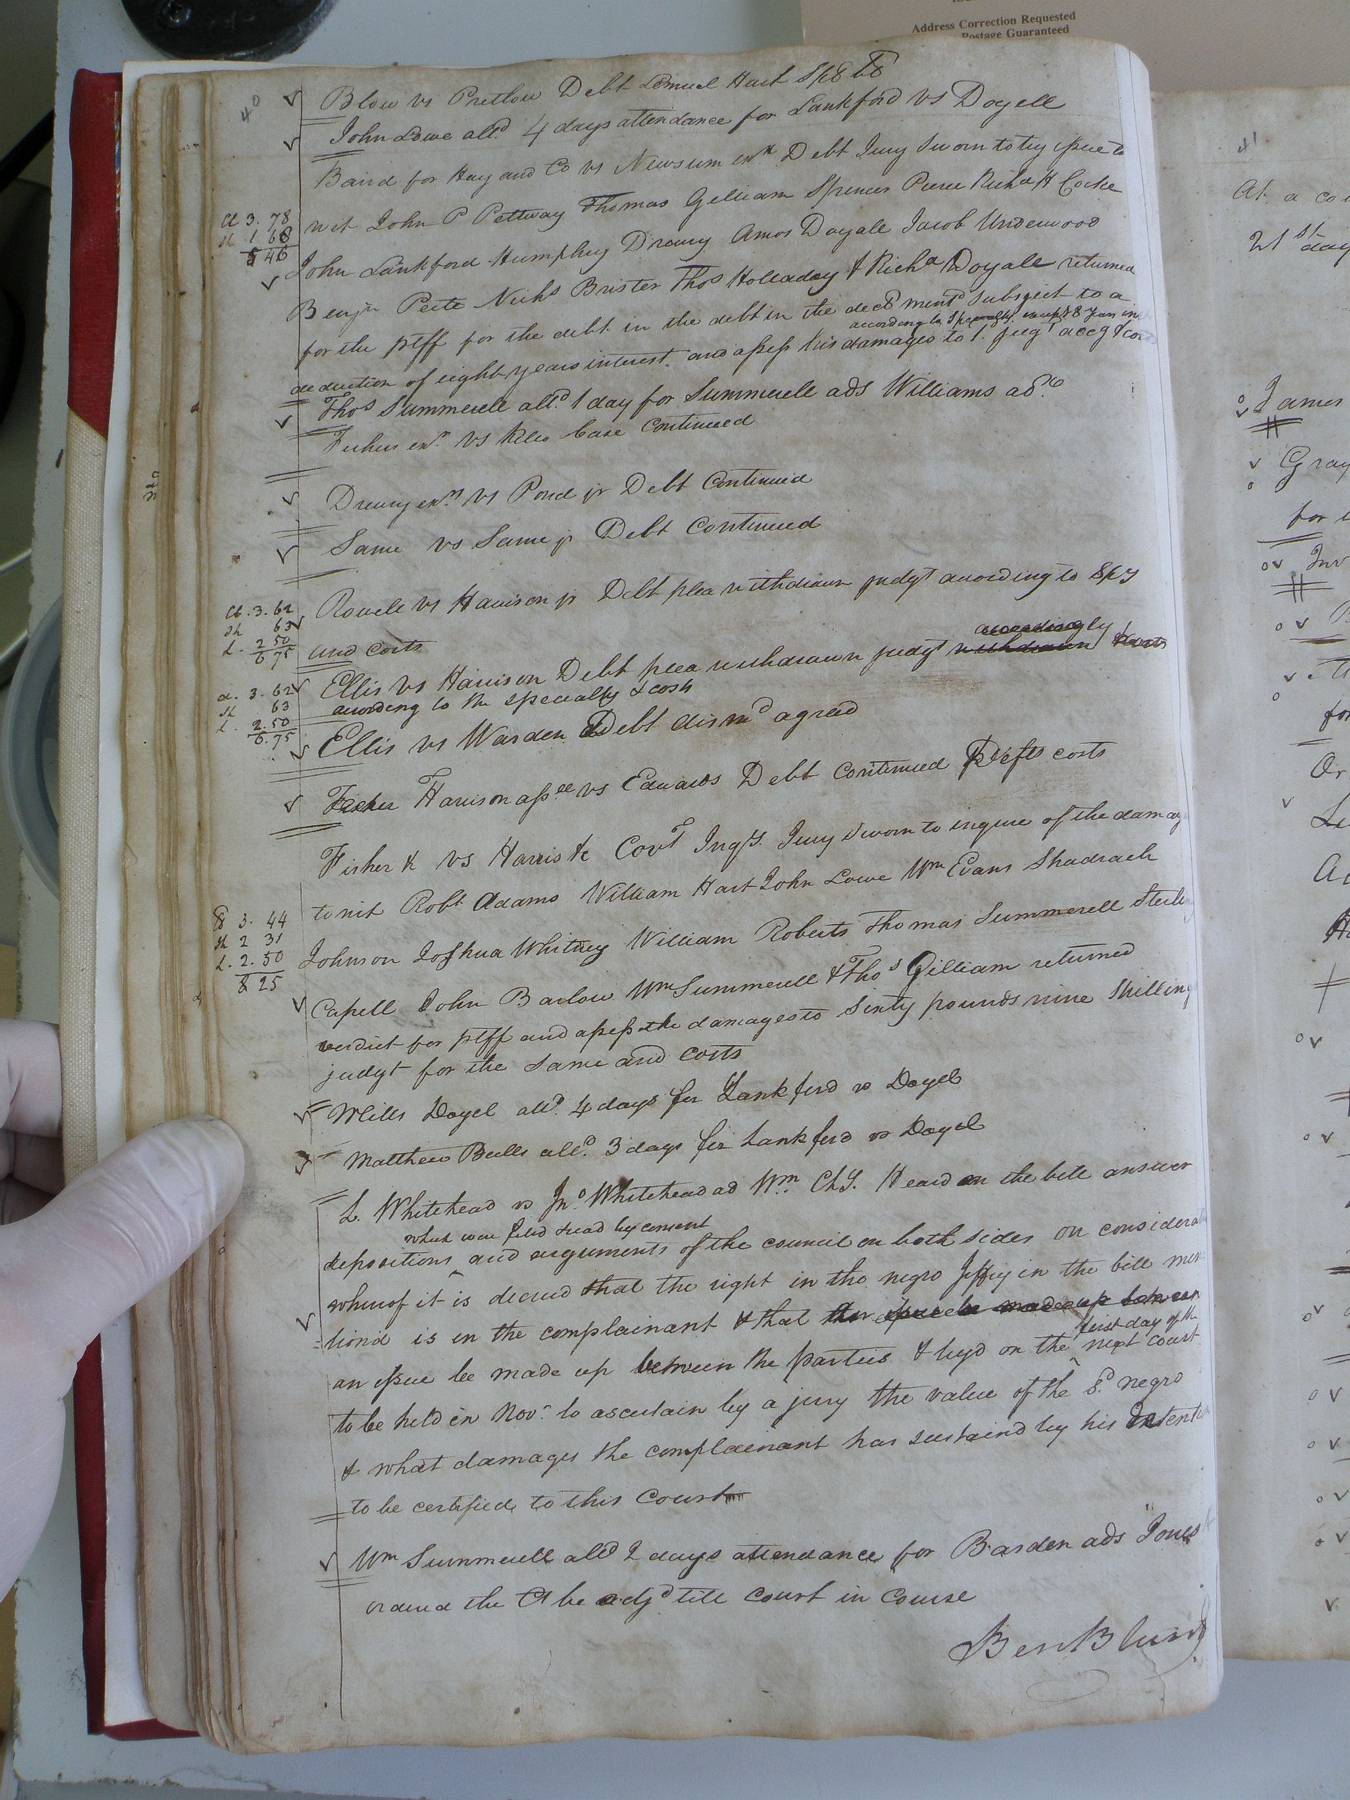 Address Correction Requested
Postage Guaranteed
40
Blow vs Pretlow Debt Lemuel Hart Sp8
John Lowe alld 4 days attendance for Lankford vs Doyell
Baird for Hay and Co vs Newsum exx Debt Jury Sworn to try issue to
wit John P Pettway Thomas Gilliam Spencer Pierce Richd H Cocke
Cl 3. 78
Sh 1 68
5 46
John Lankford Humphry Drewry Amos Doyall Jacob Underwood
Benjn Peete Nichs Brister Thos Holladay & Richd Doyall returned
for the ptff for the debt in the debt in the decl mentd subject to a
according to Specialty except 8 years in
deduction of eight years interest and assess his damages to 1. Judgt accg & cost
Thos Summerell alld 1 day for Summerell ads Williams ado
Fisher exr vs Case Continued
Drewry exrs vs Pond jr Debt Continued
Same vs Same jr Debt Continued
Cl. 3. 62
Sh 63
L. 2 50
6 75
Rowell vs Harrison jr Debt plea withdrawn judgt according to Spy
and costs
accordingly
Cl. 3. 62
Sh 63
L. 2. 50
6. 75
Ellis vs Harrison Debt plea withdrawn judgt withdrawn
according to the specialty & costs
Ellis vs Warden Debt dismd agreed
Fisher Harrison assee vs Edwards Debt Continued Defts costs
Fisher & vs Harris &c Covt Inqy. Jury Sworn to inquire of the damag
to wit Robt Adams William Hart John Lowe Wm Evans Shadrach
Cl 3. 44
Sh 2 31
L. 2. 50
8 25
Johnson Joshua Whitney William Roberts Thomas Summerell Sterling
Capell John Barlow Wm Summerell & Thos Gilliam returned
verdict for ptff and assess the damages to Sixty pounds nine Shilling
judgt for the same and costs
Mills Doyel alld 4 days for Lankford vs Doyel
Matthew Bells alld 3 days for Lankford vs Doyel
L. Whitehead vs Jno Whitehead ad Wm Chy. Heard on the bill answer
which were filed & read by consent
depositions and arguments of the council on both sides on considera
whereof it is decreed that the right in the negro Jeffry in the bill men
tiond is in the complainant & that the issue be made up between
first day of the
an issue be made up between the parties & tryd on the next court
to be held in Novr to ascertain by a jury the value of the sd negro
& what damages the complainant has sustaind by his detenti
to be certified to this Court
Wm Summerell alld 2 days attendance for Barden ads Jones
ordered the Ct be adjd till court in Course
Ben Blunt
41
At a co
21st day
James
Gray
for
Inv
for
Or